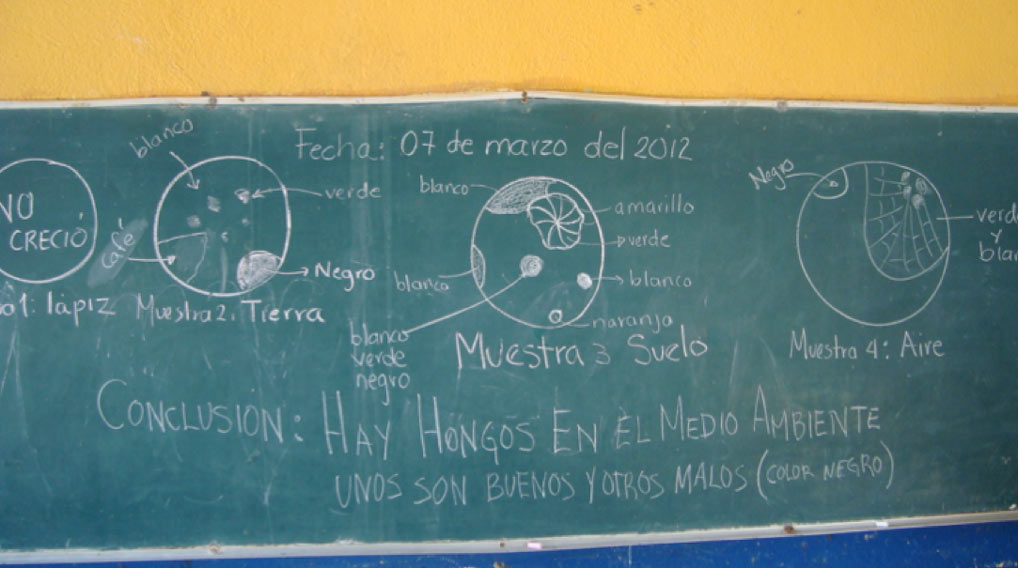 Fecha: 07 de marzo del 2012
NO
CRECIÓ
lápiz
blanco
verde
Café
Negro
Muestra 2. Tierra
blanco
amarillo
verde
blanco
blanco
naranja
blanco
verde
negro
Muestra 3 Suelo
Negro
y
Muestra 4: Aire
CONCLUSION: HAY HONGOS EN EL MEDIO AMBIENTE
UNOS SON BUENOS Y OTROS MALOS (COLOR NEGRO)